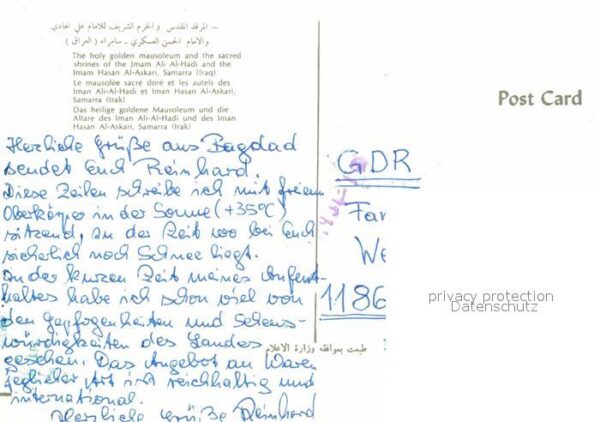 – المرقد المقدس والحرم الشريف للامام علي الهادي
والامام الحسن العسكري – سامراء (العراق)
The holy golden mausoleum and the sacred
shrines of the Imam Ali Al-Hadi and the
Imam Hasan Al-Askari, Samarra (Iraq)
Le mausolée sacré doré et les autels des
Iman Ali-Al-Hadi et Iman Hasan Al-Askari,
Samarra (Irak)
Das heilige goldene Mausoleum und die
Altare des Iman Ali-Al-Hadi und des Iman
Hasan Al-Askari, Samarra (Irak)
Post Card
Herzliche Grüße aus Bagdad
sendet Euch Reinhard.
Diese Zeilen schreibe ich mit freiem
Oberkörper in der Sonne (+35°C)
sitzend, zu der Zeit wo bei Euch
sicherlich noch Schnee liegt.
In der kurzen Zeit meines Aufent-
haltes habe ich schon viel von
den Gepfogenheiten und Sehens-
würdigkeiten des Landes
gesehen. Das Angebot an Waren
jeglicher Art ist reichhaltig und
international.
Herzliche Grüße Reinhard
GDR
Fam
We
1186
privacy protection
Datenschutz
طبعت بموافقة وزارة الاعلام